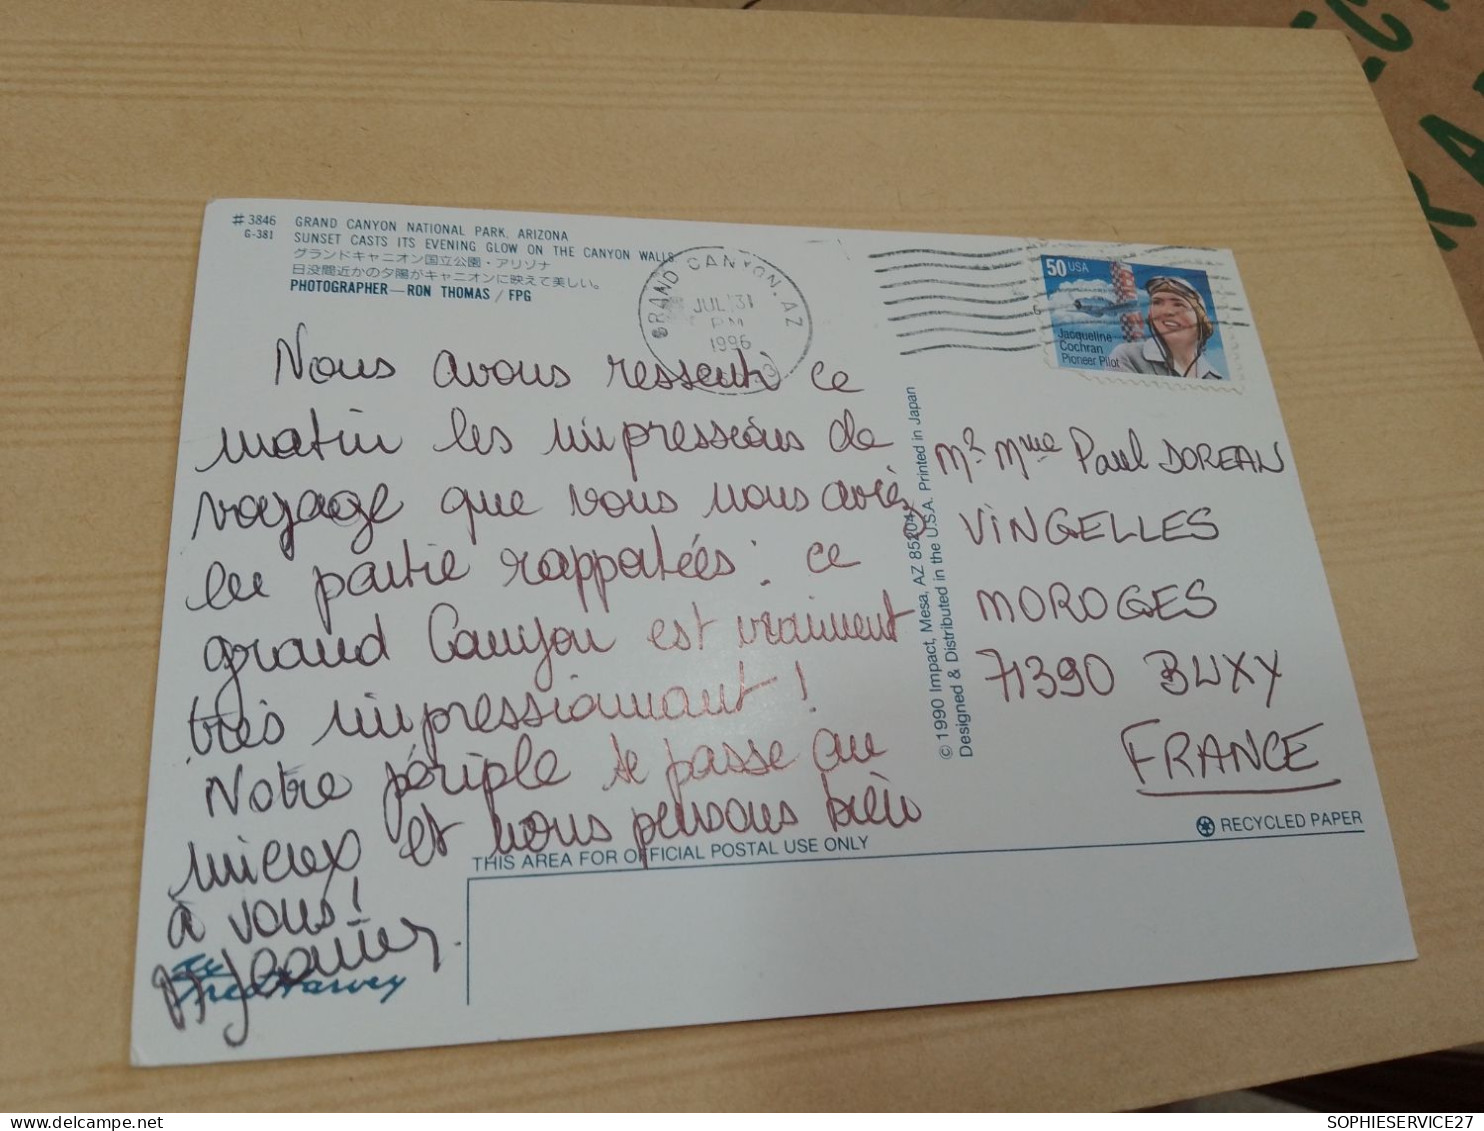 # 3846 GRAND CANYON NATIONAL PARK, ARIZONA
G-381 SUNSET CASTS ITS EVENING GLOW ON THE CANYON WALLS
グランドキャニオン国立公園・アリゾナ
日没間近かの夕陽がキャニオンに映えて美しい。
PHOTOGRAPHER—RON THOMAS / FPG
GRAND CANYON, AZ
JUL 31
PM
1996
50 USA
Jacqueline
Cochran
Pioneer Pilot
Nous avons ressenti ce
matin les impressions de
voyage que vous nous aviez
en partie rapportées : ce
grand Canyon est vraiment
très impressionnant !
Notre périple se passe au
mieux et nous pensons bien
à vous !
Fred Harvey
© 1990 Impact, Mesa, AZ 85204
Designed & Distributed in the U.S.A. Printed in Japan
Mr Mme Paul DOREAU
VINGELLES
MOROGES
71390 BUXY
FRANCE
RECYCLED PAPER
THIS AREA FOR OFFICIAL POSTAL USE ONLY
SOPHIESERVICE27